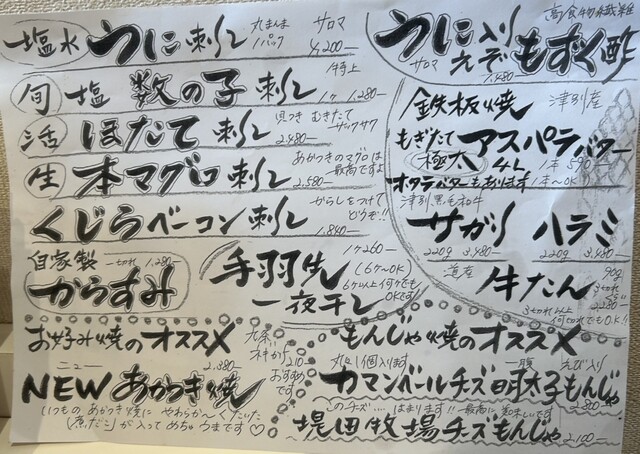 塩水 うに刺し 丸まんま 1パック サロマ 4,200-
旬 塩 数の子刺し 特上 1ケ 1,280-
活 ほたて刺し 貝つき むきたて サックサク 2,480-
生 本マグロ刺し あかつきのマグロは最高ですよ 2,580-
くじらベーコン刺し からしをつけてどうぞ!! 1,840-
自家製 一切れ 1,280-
からすみ
手羽先 1ケ260-
(6ケ〜OK)
6ケ以上何ケでもOKです!
一夜干し
うに入り
サロマ えぞ もずく酢
1,480-
鉄板焼 津別産
もぎたて アスパラバター
極太 4L 1本590
オタラバターもあります 1本〜OK!
津別黒毛和牛
サガリ ハラミ
220g 3,480- 220g 3,480-
道産 牛たん 90g
3切れ 2,280-
3切れ以上何切れでもOK!!
お好み焼のオススメ
ニュー 2,380-
NEWあかつき焼 おすすめです
いつものあかつき焼に やわらか〜くたいた
(煮だこ)が入ってめちゃうまです♡
もんじゃ焼のオススメ
丸々1個入ります 一腹 えび入り
カマンベールチーズ明太子もんじゃ
このチーズ はまります!!最高に美味しいです
堤田牧場チーズもんじゃ 2,100-